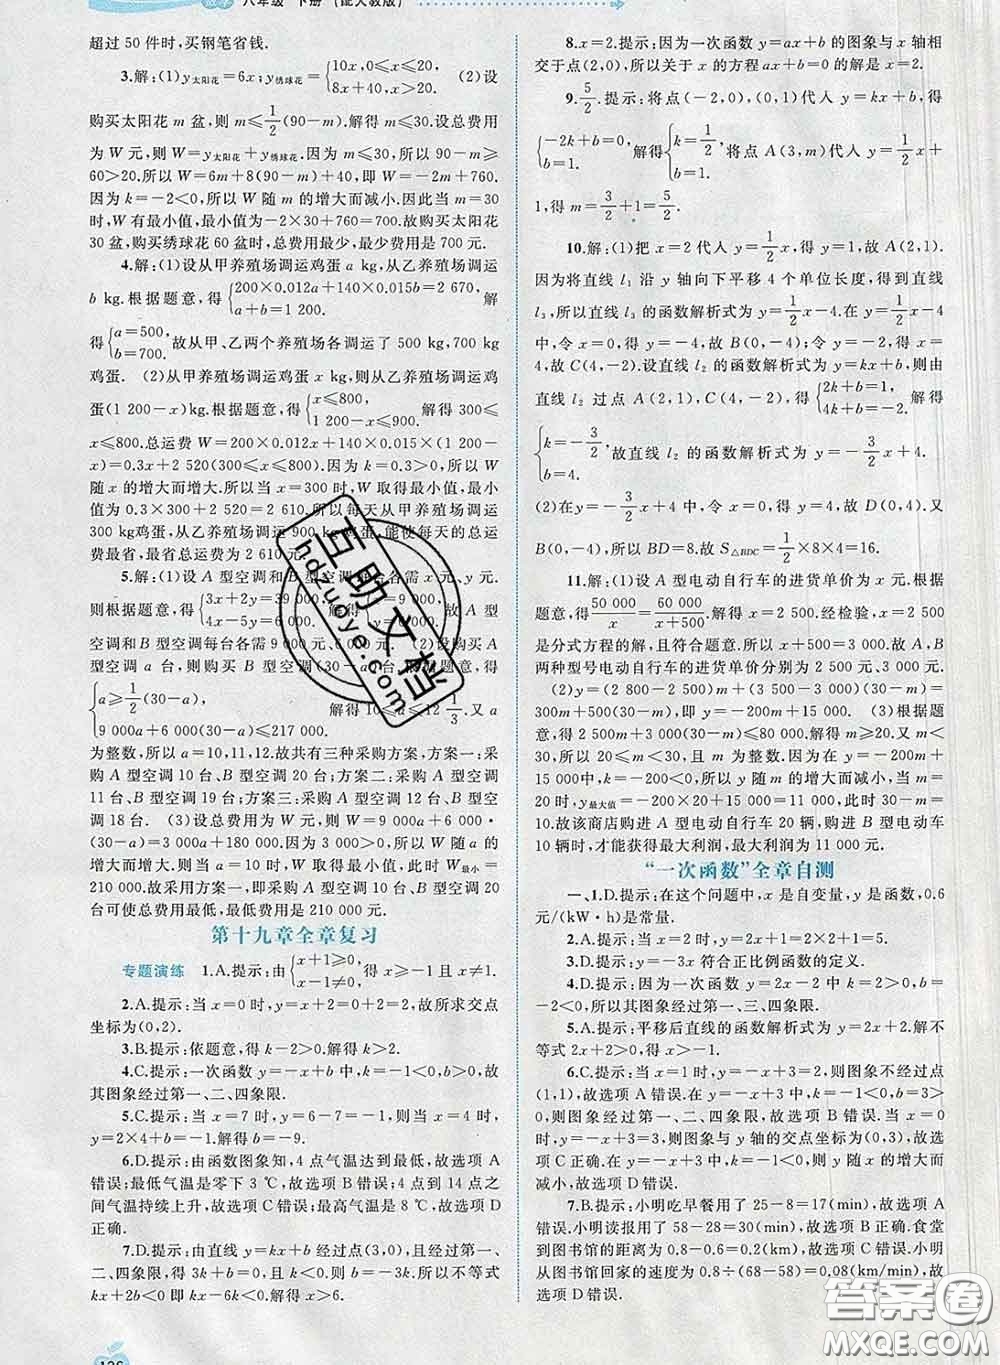 八年级 下册 (配人教版)
超过 50 件时,买钢笔省钱.
3.解:(1)y太阳花=6x;y绣球花={10x,0≤x≤20, (2)设
8x+40,x>20.
购买太阳花 m 盆,则 m≤1/2(90-m).解得 m≤30.设总费用
为 W 元,则 W=y太阳花+y绣球花.因为 m≤30,所以 90-m≥
60>20.所以 W=6m+8(90-m)+40,即 W=-2m+760.
因为 k=-2<0,所以 W 随 m 的增大而减小.因此当 m=30
时,W 有最小值,最小值为-2×30+760=700.故购买太阳花
30 盆,购买绣球花 60 盆时,总费用最少,最少费用是 700 元.
4.解:(1)设从甲养殖场调运鸡蛋 a kg,从乙养殖场调运
b kg.根据题意,得{200×0.012a+140×0.015b=2 670, 解
a+b=1 200.
得{a=500, 故从甲、乙两个养殖场各调运了 500 kg,700 kg
b=700.
鸡蛋. (2)从甲养殖场调运鸡蛋 x kg,则从乙养殖场调运鸡
蛋(1 200-x)kg.根据题意,得{x≤800, 解得 300≤x
1 200-x≤900.
≤800.总运费 W=200×0.012x+140×0.015×(1 200-
x)=0.3x+2 520(300≤x≤800).因为 k=0.3>0,所以 W
随 x 的增大而增大.所以当 x=300 时,W 取得最小值,最小值
为 0.3×300+2 520=2 610.所以每天从甲养殖场调运
300 kg鸡蛋,从乙养殖场调运 900 kg鸡蛋,能使每天的总运
费最省,最省总运费为 2 610 元.
5.解:(1)设 A 型空调和 B 型空调每台各需 x 元、y 元.
则根据题意,得{3x+2y=39 000, 解得{x=9 000, 故 A 型
4x-5y=6 000. y=6 000.
空调和 B 型空调每台各需 9 000 元、6 000 元. (2)设购买 A
型空调 a 台,则购买 B 型空调(30-a)台.根据题意,得
{a≥1/2(30-a), 解得 10≤a≤12 1/3.又 a
9 000a+6 000(30-a)≤
为整数,所以 a=10,11,12.故共有三种采购方案.方案一:采
购 A 型空调 10 台、B 型空调 20 台;方案二:采购 A 型空调
11 台、B 型空调 19 台;方案三:采购 A 型空调 12 台、B 型空
调 18 台. (3)设总费用为 W 元,则 W=9 000a+6 000·
(30-a)=3 000a+180 000.因为 k=3 000>0,所以 W 随 a 的
增大而增大.故当 a=10 时,W 取得最小值.此时 W最小=
210 000.即采购 A 型空调 10 台、B 型空调 20 台可使总费用最低,最低费用是 210 000 元.
第十九章全章复习
专题演练 1.A.提示:由{x+1≥0, 得 x≥-1 且 x≠1.
x-1≠0,
2.A.提示:当 x=0 时,y=x+2=0+2=2,故所求交点
坐标为(0,2).
3.B.提示:依题意,得 k-2>0.解得 k>2.
4.C.提示:一次函数 y=-x+b 中,k=-1<0,b>0,故
其图象经过第一、二、四象限.
5.C.提示:当 x=7 时,y=6-7=-1,则当 x=4 时,
y=2×4+b=-1.解得 b=-9.
6.D.提示:由函数图象知,4 点气温达到最低,故选项 A
错误;最低气温是零下 3 ℃,故选项 B 错误;4 点到 14 点之
间气温持续上升,故选项 C 错误;最高气温是 8 ℃,故选项 D
正确.
7.D.提示:由直线 y=kx+b 经过点(3,0),且经过第一、
二、四象限,得 3k+b=0,k<0.b=-3k.所以不等式
kx+2b<0 即 kx-6k<0.解得 x>6.
8.x=2.提示:因为一次函数 y=ax+b 的图象与 x 轴相
交于点(2,0),所以关于 x 的方程 ax+b=0 的解是 x=2.
9.5/2.提示:将点(-2,0),(0,1)代入 y=kx+b,得
{-2k+b=0, 解得{k=1/2, 将点 A(3,m)代入 y=1/2x+
b=1. b=1.
1,得 m=3/2+1=5/2.
10.解:(1)把 x=2 代入 y=1/2x,得 y=1,故 A(2,1).
因为将直线 l1 沿 y 轴向下平移 4 个单位长度,得到直线
l3,所以直线 l3 的函数解析式为 y=1/2x-4.在 y=1/2x-4
中,令 x=0,得 y=-4,故 B(0,-4);令 y=-2,得 x=4,故 C(4,-2).设直线 l2 的函数解析式为 y=kx+b,则由
直线 l2 过点 A(2,1),C(4,-2),得{2k+b=1, 解得
4k+b=-2.
{k=-3/2, 故直线 l2 的函数解析式为 y=-3/2x+4.
b=4.
(2)在 y=-3/2x+4 中,令 x=0,得 y=4,故 D(0,4).又
B(0,-4),所以 BD=8.故 S△BDC=1/2×8×4=16.
11.解:(1)设 A 型电动自行车的进货单价为 x 元.根据
题意,得50 000/x=60 000/(x+500).解得 x=2 500.经检验,x=2 500
是分式方程的解,且符合题意.所以 x+500=3 000.故 A,B
两种型号电动自行车的进货单价分别为 2 500 元、3 000 元.
(2)y=(2 800-2 500)m+(3 500-3 000)(30-m)=
300m+500(30-m)=-200m+15 000. (3)根据题
意,得 2 500m+3 000(30-m)≤80 000.解得 m≥20.又 m<
30,所以 20≤m<30 且 m 为整数.因为在 y=-200m+
15 000中,k=-200<0,所以 y 随 m 的增大而减小.当 m=
20 时,y最大值=-200×20+15 000=11 000,此时 30-m=
10.故该商店购进 A 型电动自行车 20 辆,购进 B 型电动车
10 辆时,才能获得最大利润,最大利润为 11 000 元.
“一次函数”全章自测
一、1.D.提示:在这个问题中,x 是自变量,y 是函数,0.6
元/(kW·h)是常量.
2.A.提示:当 x=2 时,y=2x+1=2×2+1=5.
3.D.提示:y=-3x 符合正比例函数的定义.
4.B.提示:因为一次函数 y=2x-2 中,k=2>0,b=
-2<0,所以其图象经过第一、三、四象限.
5.A.提示:平移后直线的函数解析式为 y=2x+2.解不
等式 2x+2>0,得 x>-1.
6.C.提示:当 x=1 时,y=-x+3=2,则图象不经过点
(1,1),故选项 A 错误.因为 y=-x+3 中,k=-1<0,b=3>
0,所以图象经过第一、二、四象限,故选项 B 错误.当 x=0
时,y=-x+3=3,则图象与 y 轴的交点坐标为(0,3),故选
项 C 正确.因为在 y=-x+3 中,k<0,所以 y 随 x 的增大而
减小,故选项 D 错误.
7.B.提示:小明吃早餐用了 25-8=17(min),故选项 A
错误.小明读报用了 58-28=30(min),故选项 B 正确.食堂
到图书馆的距离为 0.8-0.6=0.2(km),故选项 C 错误.小明
从图书馆回家的速度为 0.8÷(68-58)=0.08(km/min),故
选项 D 错误.
126
互助文档
hdzuoye.com
答案圈
MXQE.COM